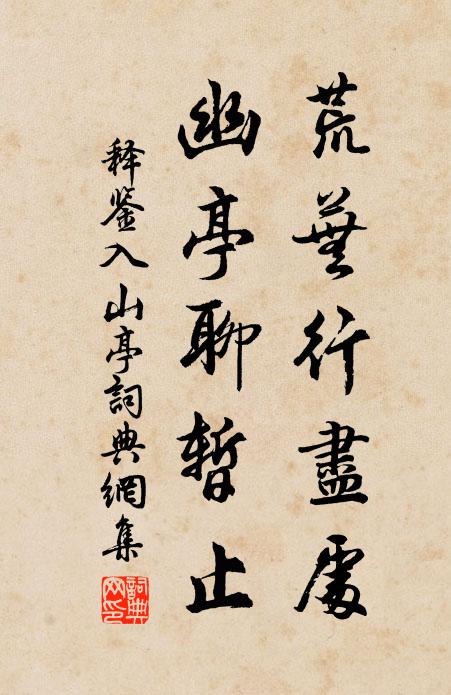 荒蕪行盡處
幽亭聊暫止
释鉴入山亭詞典網集
詞典
网印